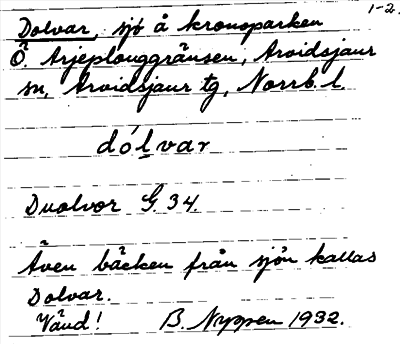 1-2.
Dolvar, sjö å kronoparken
Ö. Arjeplouggränsen, Arvidsjaur
sn, Arvidsjaur tg, Norrb. l.
dólvar
Duolvor G. 34.
Även bäcken från sjön kallas
Dolvar.
Vänd! B. Nyppen 1932.